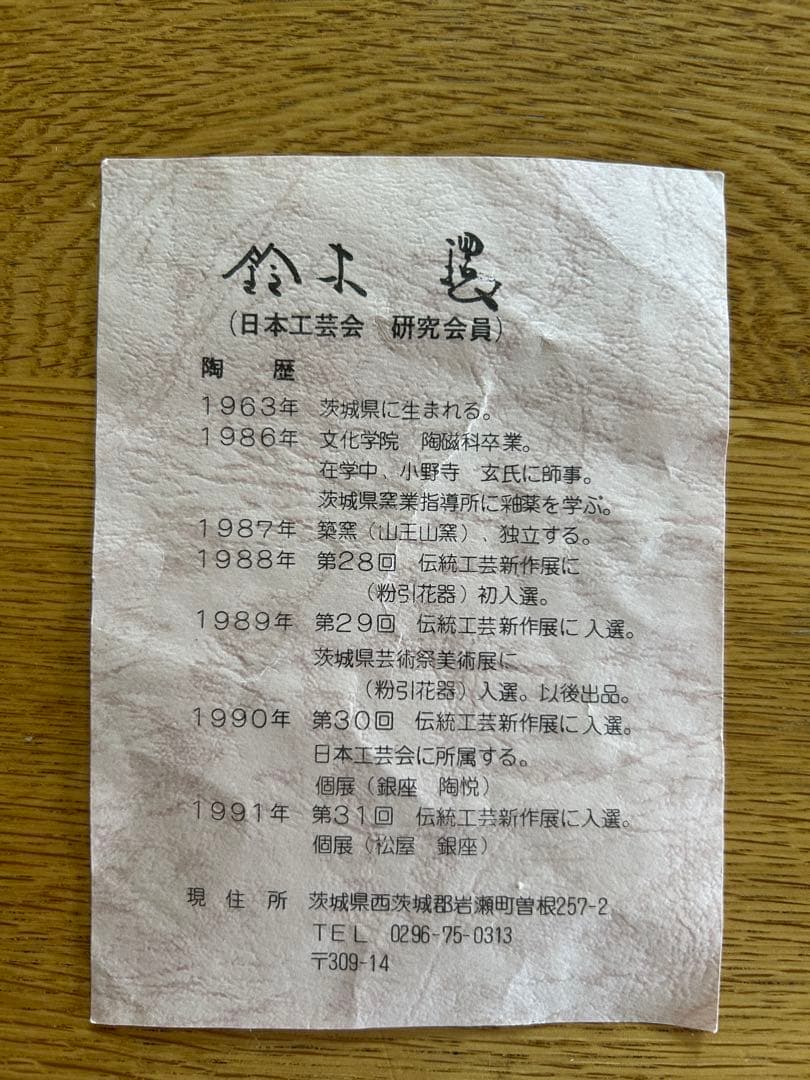 鈴木 環
(日本工芸会 研究会員)
陶 歴
1963年 茨城県に生まれる。
1986年 文化学院 陶磁科卒業。
在学中、小野寺 玄氏に師事。
茨城県窯業指導所に釉薬を学ぶ。
1987年 築窯(山王山窯)、独立する。
1988年 第28回 伝統工芸新作展に
(粉引花器)初入選。
1989年 第29回 伝統工芸新作展に入選。
茨城県芸術祭美術展に
(粉引花器)入選。以後出品。
1990年 第30回 伝統工芸新作展に入選。
日本工芸会に所属する。
個展(銀座 陶悦)
1991年 第31回 伝統工芸新作展に入選。
個展(松屋 銀座)
現住所 茨城県西茨城郡岩瀬町曽根257-2
TEL 0296-75-0313
〒309-14